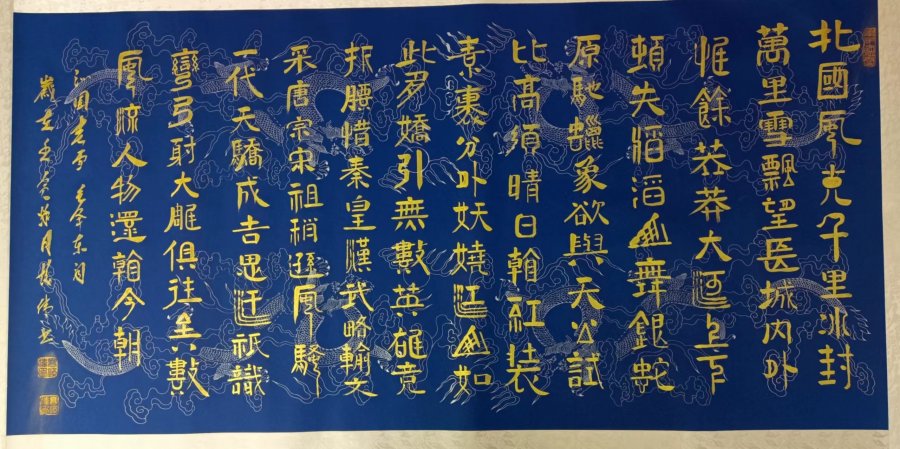 北國風光千里冰封
萬里雪飄望長城內外
惟餘莽莽大河上下
頓失滔滔山舞銀蛇
原馳蠟象欲與天公試
比高須晴日看紅装
素裹分外妖嬈江山如
此多嬌引無數英雄竟
折腰惜秦皇漢武略輸文
采唐宗宋祖稍遜風騷
一代天驕成吉思汗祇識
彎弓射大雕俱往矣數
風流人物還看今朝
沁园春雪 毛澤东詞
歲在